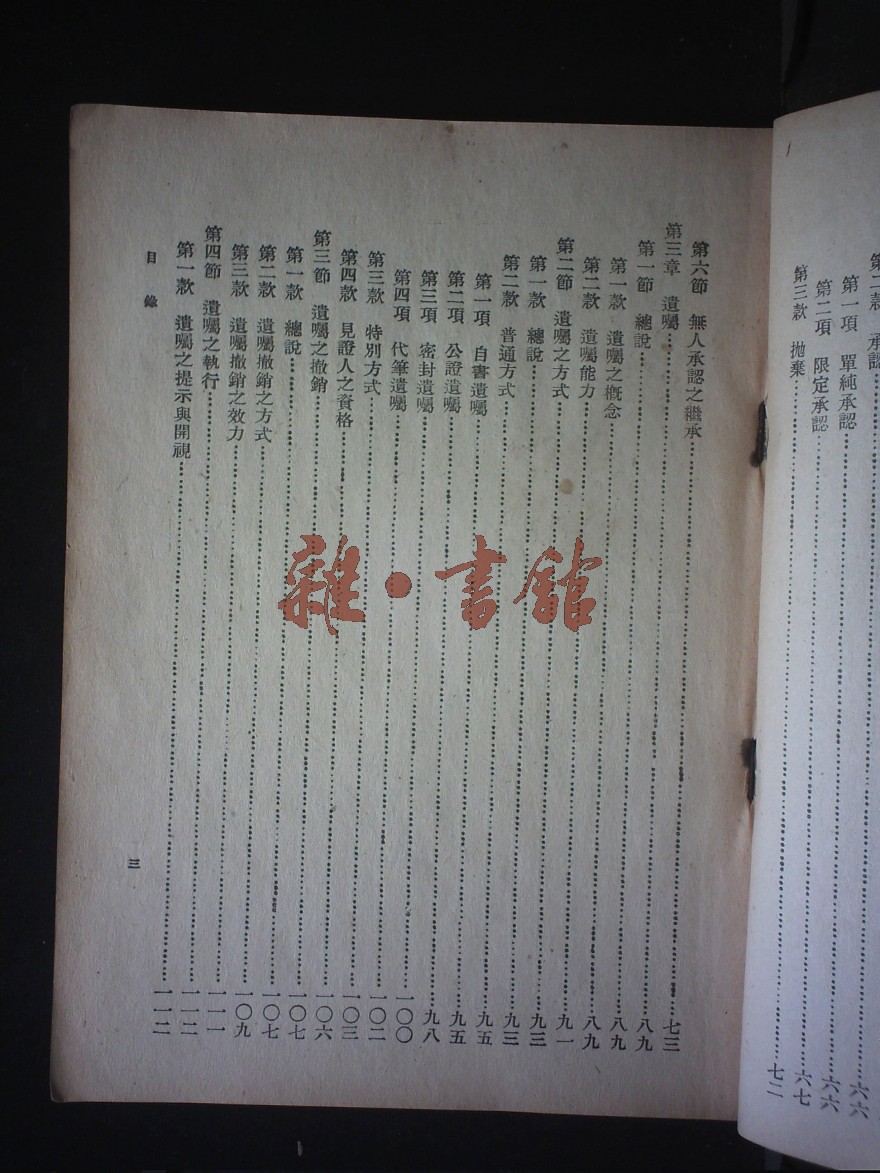 第二款 承認……六六
第一項 單純承認……六六
第二項 限定承認……六七
第三款 拋棄……七二
第六節 無人承認之繼承……七三
第三章 遺囑……八九
第一節 總說……八九
第一款 遺囑之概念……八九
第二款 遺囑能力……九一
第二節 遺囑之方式……九三
第一款 總說……九三
第二款 普通方式……九五
第一項 自書遺囑……九五
第二項 公證遺囑……九八
第三項 密封遺囑……一〇〇
第四項 代筆遺囑……一〇二
第三款 特別方式……一〇三
第四款 見證人之資格……一〇六
第三節 遺囑之撤銷……一〇七
第一款 總說……一〇七
第二款 遺囑撤銷之方式……一〇九
第三款 遺囑撤銷之效力……一一一
第四節 遺囑之執行……一一二
第一款 遺囑之提示與開視……一一二
目錄
三
雜·書館